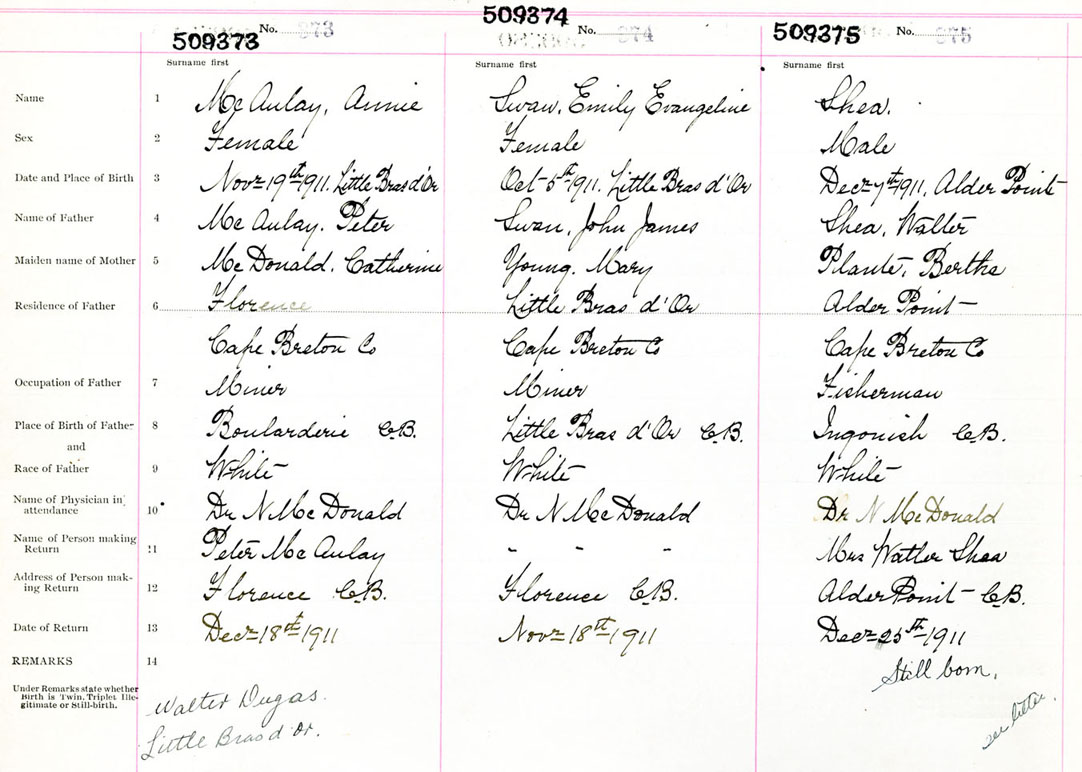 509373 No. 373 509374 No. 374 509375 No. 375
Surname first Surname first Surname first
Name 1 McAulay, Annie Swan, Emily Evangeline Shea.
Sex 2 Female Female Male
Date and Place of Birth 3 Novr 19th 1911. Little Bras d'Or Oct 5th 1911. Little Bras d'Or Decr 7th 1911, Alder Point
Name of Father 4 McAulay. Peter Swan, John James Shea, Walter
Maiden name of Mother 5 McDonald. Catherine Young. Mary Plante, Bertha
Residence of Father 6 Florence Little Bras d'Or Alder Point
Cape Breton Co Cape Breton Co Cape Breton Co
Occupation of Father 7 Miner Miner Fisherman
Place of Birth of Father 8 Boularderie C.B. Little Bras d'Or C.B. Ingonish C.B.
and
Race of Father 9 White White White
Name of Physician in attendance 10 Dr N McDonald Dr N McDonald Dr N McDonald
Name of Person making Return 11 Peter McAulay " " " Mrs Watler Shea
Address of Person mak-
ing Return 12 Florence C.B. Florence C.B. Alder Point C.B.
Date of Return 13 Decr 18th 1911 Novr 18th 1911 Decr 25th 1911
REMARKS 14 Still born.
Under Remarks state whether
Birth is Twin, Triplet, Ille-
gitimate or Still-birth.
Walter Dugas.
Little Bras d'Or.
see letter.